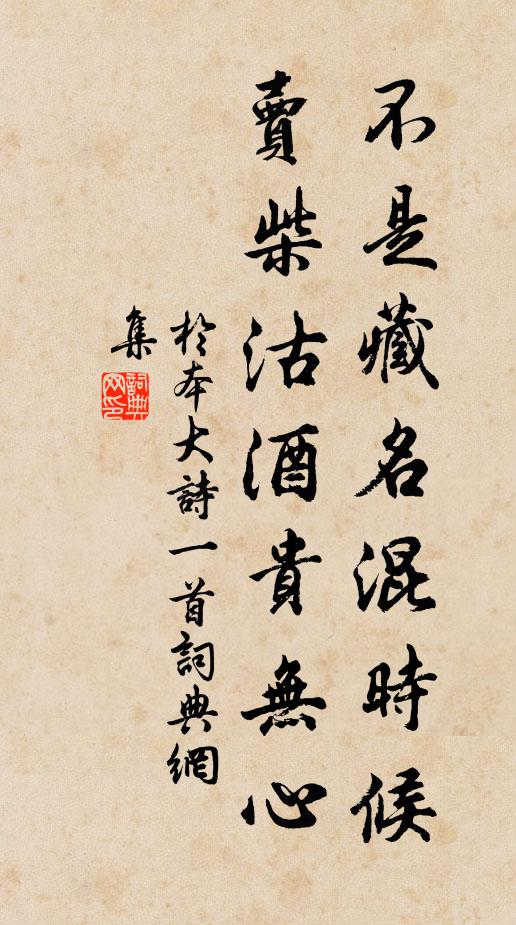 不是藏名混時候
賣柴沽酒貴無心
於本大詩一首詞典網
集
詞典網印